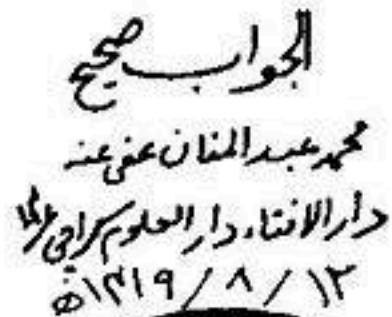 الجواب صحیح
محمد عبد المنان عفی عنہ
دار الافتاء دار العلوم کراچی ۱۴
۱۴۱۹ / ۸ / ۱۳ ھ